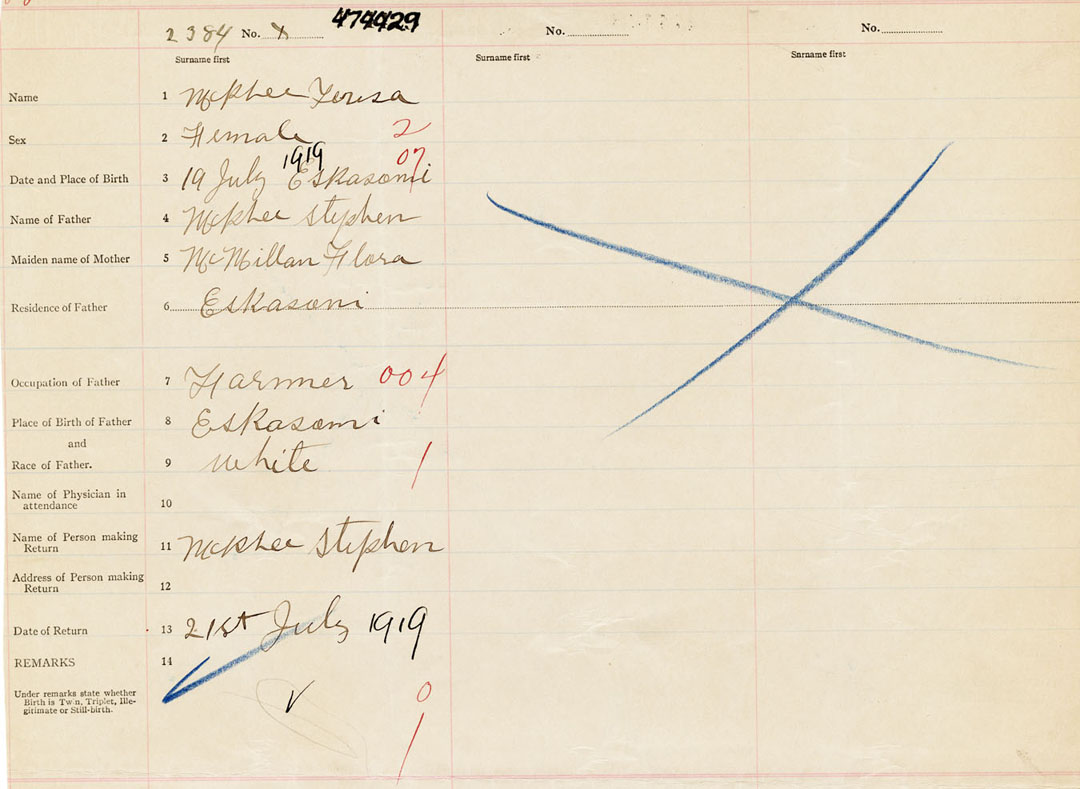 474429
2384 No. X No. No.
Surname first Surname first Surname first
Name 1 McPhee Teresa
Sex 2 Female 2
1919 07
Date and Place of Birth 3 19 July Eskasoni
Name of Father 4 McPhee Stephen
Maiden name of Mother 5 McMillan Flora
Residence of Father 6 Eskasoni
Occupation of Father 7 Farmer 004
Place of Birth of Father 8 Eskasoni
and
Race of Father. 9 White 1
Name of Physician in
attendance 10
Name of Person making
Return 11 McPhee Stephen
Address of Person making
Return 12
Date of Return 13 21st July 1919
REMARKS 14
Under remarks state whether
Birth is Twin, Triplet, Ille-
gitimate or Still-birth.
0
1